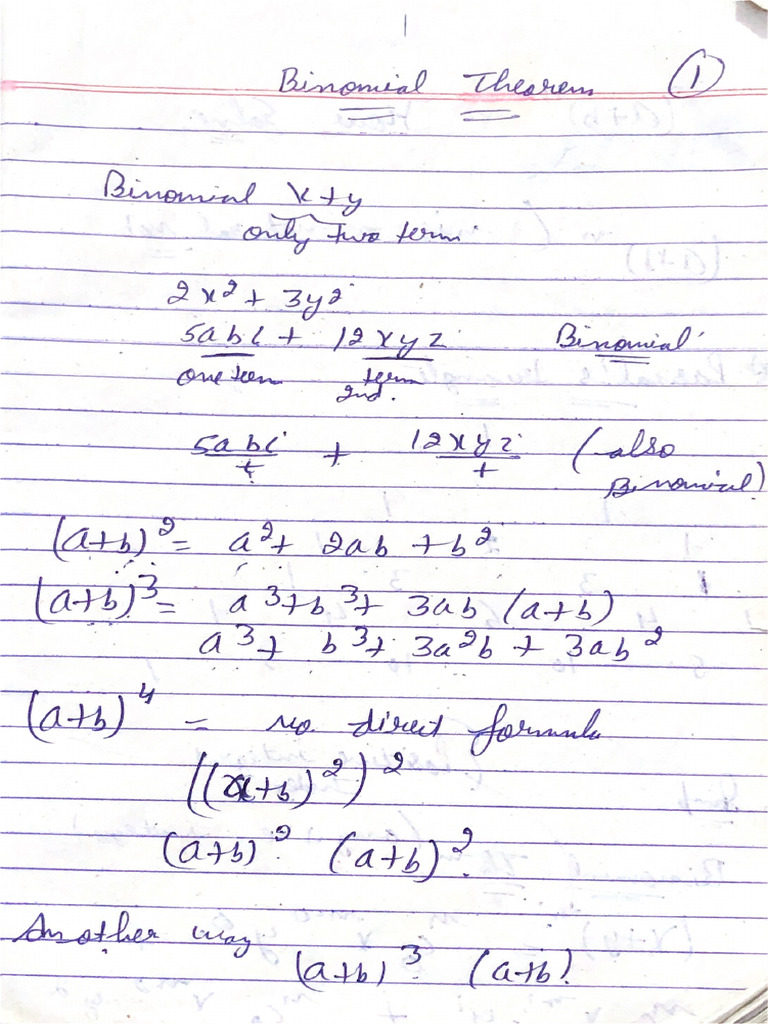 Binomial Theorem 1
Binomial x+y
only two term
2x² + 3y²
5abc + 12xyz Binomial
one term term
2nd.
5abc/t + 12xyz/t (also
Binomial)
(a+b)² = a² + 2ab + b²
(a+b)³ = a³+b³+ 3ab (a+b)
a³+ b³+ 3a²b + 3ab²
(a+b)⁴ = no direct formula
((a+b)²)²
(a+b)² (a+b)²
Another way
(a+b)³ (a+b)